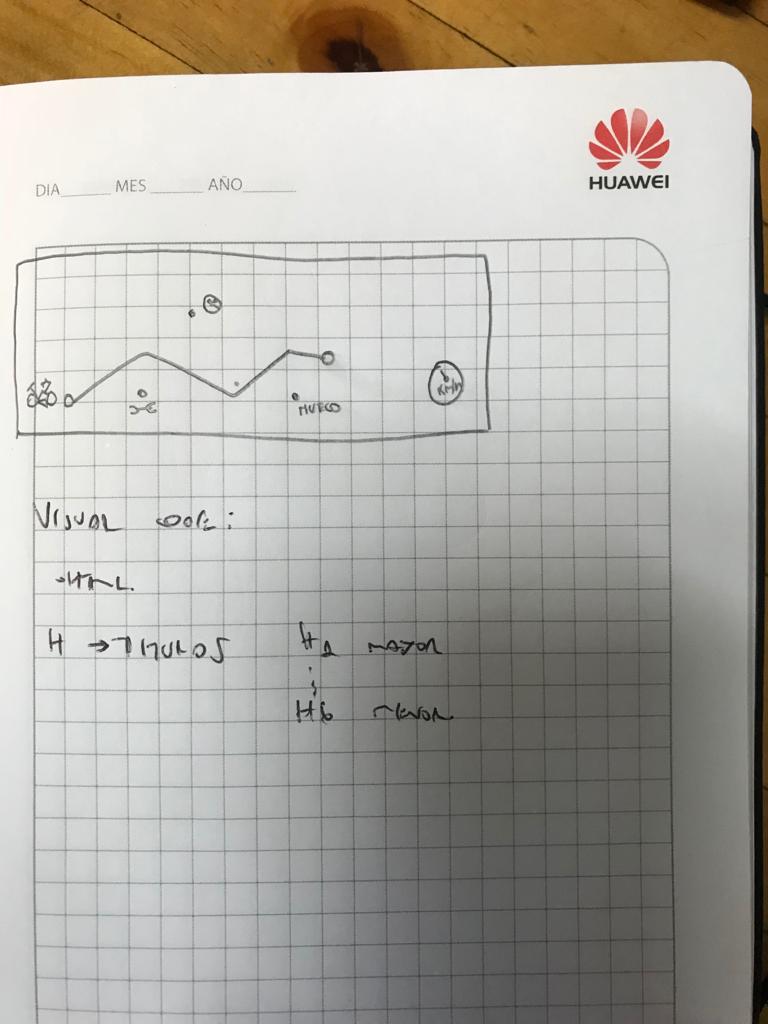 HUAWEI
DIA MES AÑO
KM/H
HUECO
VISUAL CODE:
.HTML
H → TITULOS H1 MAYOR
H6 MENOR